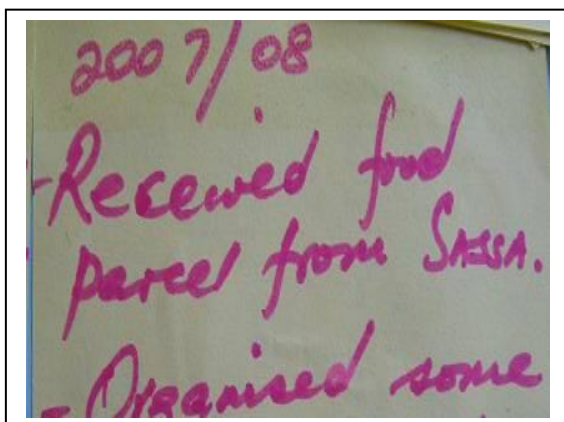 2007/08
- Received food
parcel from SASSA.
- Organised some